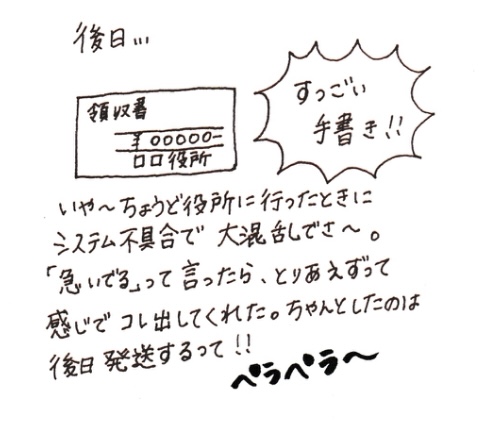 後日…
領収書
¥00000-
口口役所
すっごい
手書き!!
いや〜ちょうど役所に行ったときに
システム不具合で 大混乱でさ〜。
「急いでる」って言ったら、とりあえずって
感じで コレ出してくれた。ちゃんとしたのは
後日 発送するって!!
ペラペラ〜